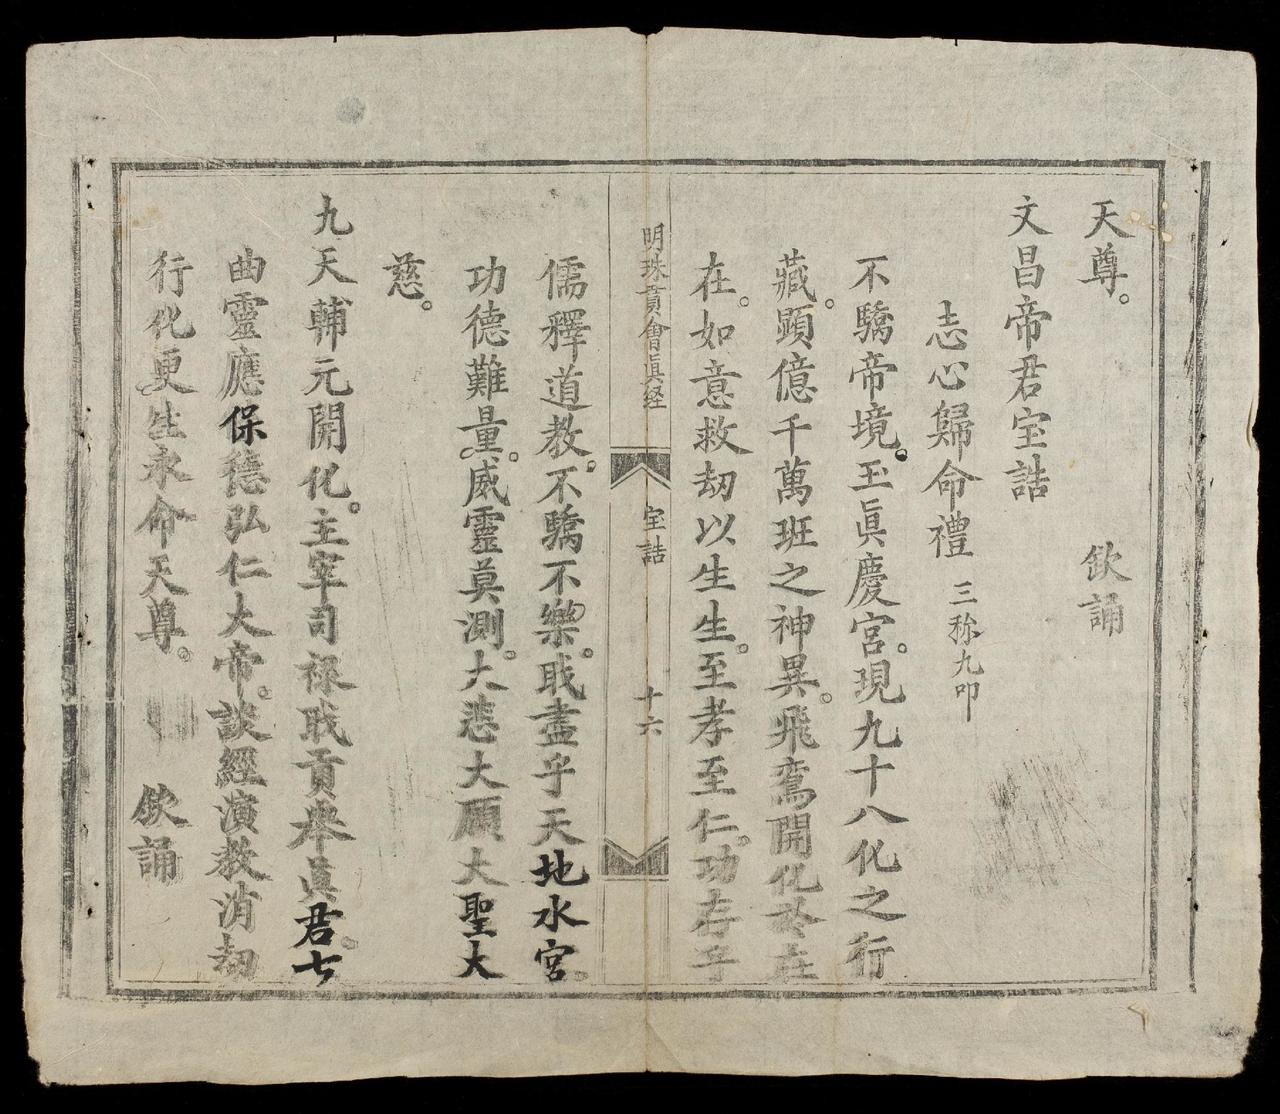 天尊。 欽誦
文昌帝君宝誥
志心歸命禮 三称九叩
不驕帝境。玉眞慶宮。現九十八化之行
藏。顕億千萬班之神異。飛鸞開化於在
在。如意救刼以生生。至孝至仁。功存乎
明珠貫會眞経 宝誥 十六
儒釋道教。不驕不樂。職盡乎天地水宮。
功德難量。威靈莫測。大悲大願大聖大
慈。
九天輔元開化。主宰司禄職貢舉眞君。七
曲靈應保德弘仁大帝。談經演教消刼
行化更生永命天尊。 欽誦